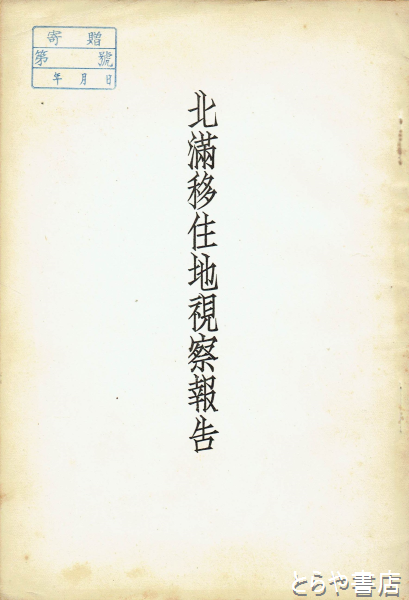 寄贈
第 號
年 月 日
北滿移住地視察報告
とらや書店